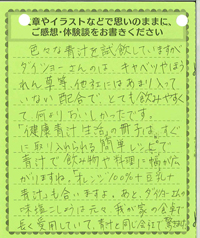 章やイラストなどで思いのままに、
ご感想・体験談をお書きください
色々な青汁を試飲していますが
ダイショーさんのは、キャベツやほう
れん草等、他社にはあまり入って
いない配合で、とても飲みやすくて
何よりおいしかったです。
「健康青汁生活」の冊子は、すぐ
に取り入れられる簡単レシピで
青汁で飲み物や料理に幅が広
がりますね。オレンジ100%+豆乳+
青汁も合いますよ。あと、ダイショーさんの
味塩こしょうは元々、我が家の食卓で
長く愛用していて、青汁と同じ会社で驚